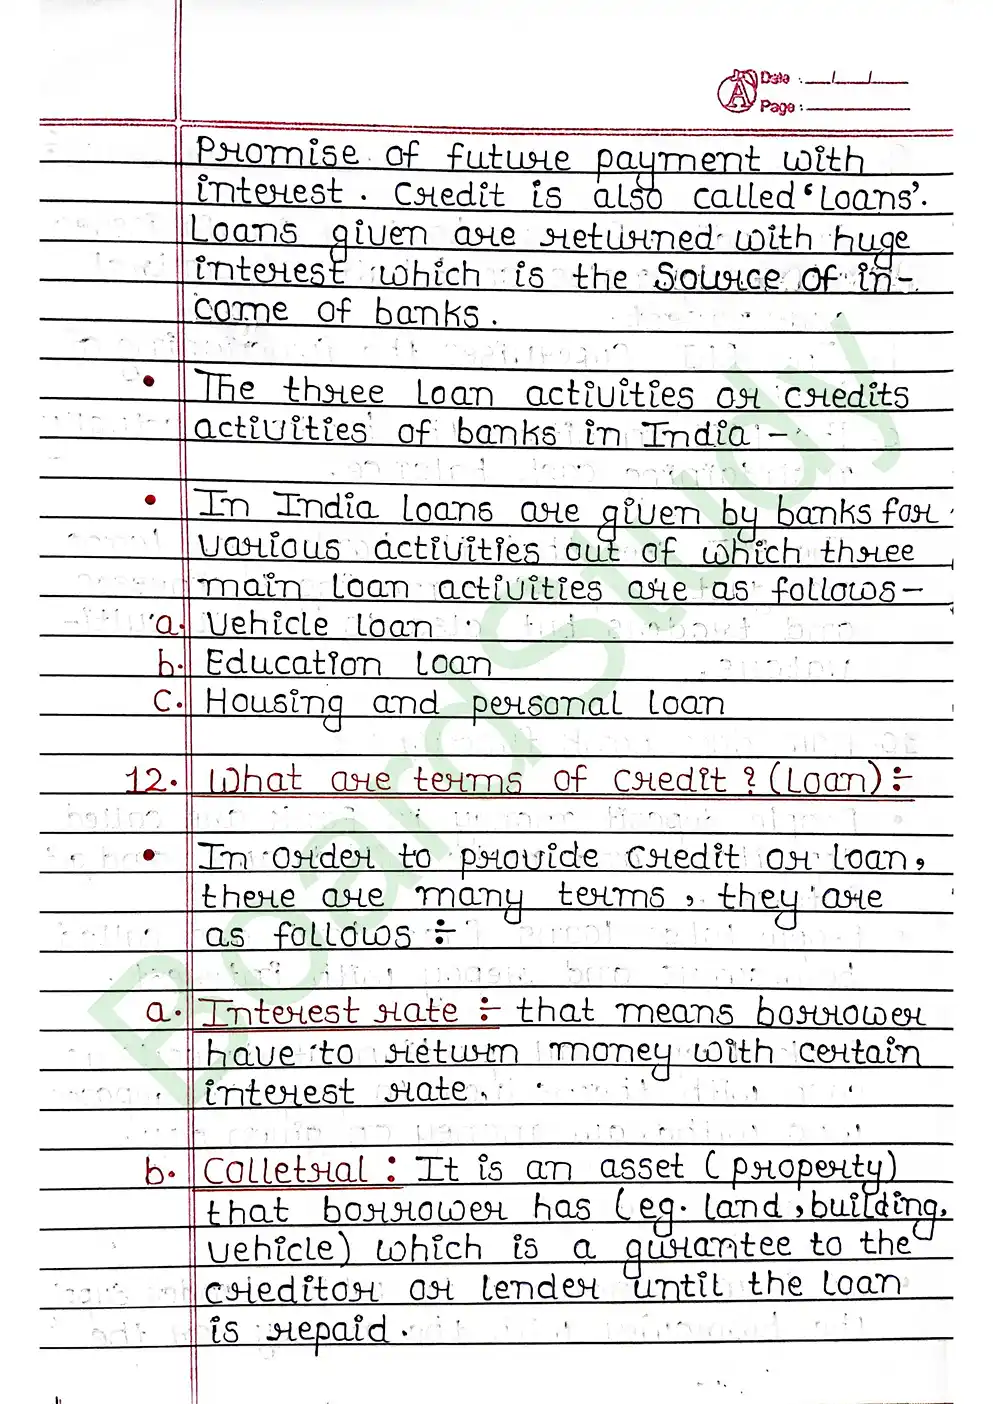 Date : __/__/__
Page :
Promise of future payment with
interest. Credit is also called 'Loans'.
Loans given are returned with huge
interest which is the Source of in-
come of banks.
• The three loan activities or credits
activities of banks in India -
• In India loans are given by banks for
various activities out of which three
main loan activities are as follows-
a. Vehicle loan
b. Education loan
C. Housing and personal loan
12. What are terms of credit? (Loan) :-
• In order to provide credit or loan,
there are many terms, they are
as follows :-
a. Interest rate :- that means borrower
have to return money with certain
interest rate.
b. Colletral : It is an asset (property)
that borrower has (eg. land, building,
vehicle) which is a gurantee to the
creditor or lender until the loan
is repaid.
BoardStudy